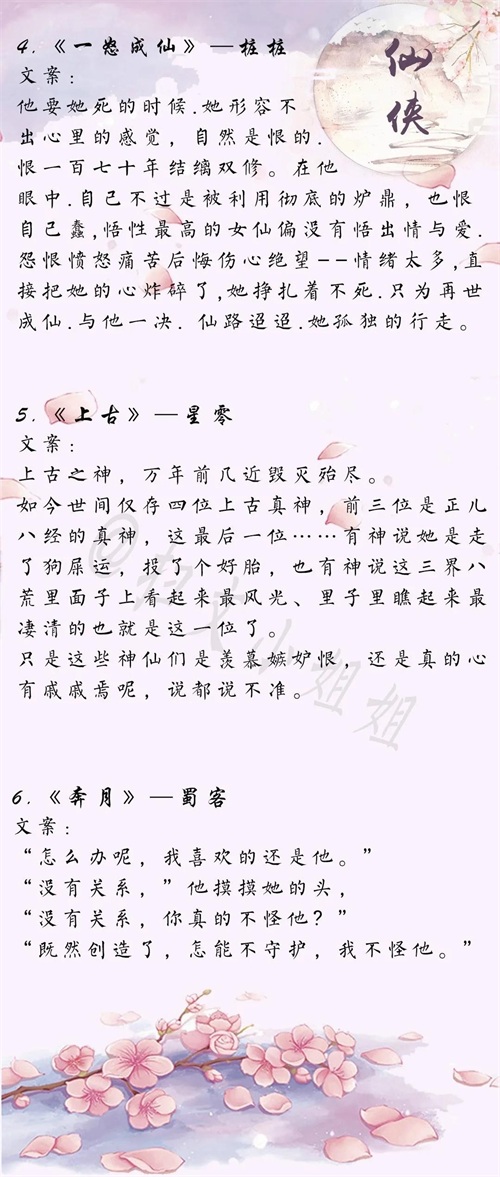 仙侠
4.《一怒成仙》—桩桩
文案：
他要她死的时候.她形容不
出心里的感觉，自然是恨的.
恨一百七十年结缡双修。在他
眼中.自己不过是被利用彻底的炉鼎，也恨
自己蠢,悟性最高的女仙偏没有悟出情与爱.
怨恨愤怒痛苦后悔伤心绝望--情绪太多,直
接把她的心炸碎了,她挣扎着不死.只为再世
成仙.与他一决. 仙路迢迢.她孤独的行走。
5.《上古》—星零
文案：
上古之神，万年前几近毁灭殆尽。
如今世间仅存四位上古真神，前三位是正儿
八经的真神，这最后一位……有神说她是走
了狗屎运，投了个好胎，也有神说这三界八
荒里面子上看起来最风光、里子里瞧起来最
凄清的也就是这一位了。
只是这些神仙们是羡慕嫉妒恨，还是真的心
有戚戚焉呢，说都说不准。
@推文小姐姐
6.《奔月》—蜀客
文案：
“怎么办呢，我喜欢的还是他。”
“没有关系，”他摸摸她的头，
“没有关系，你真的不怪他？”
“既然创造了，怎能不守护，我不怪他。”